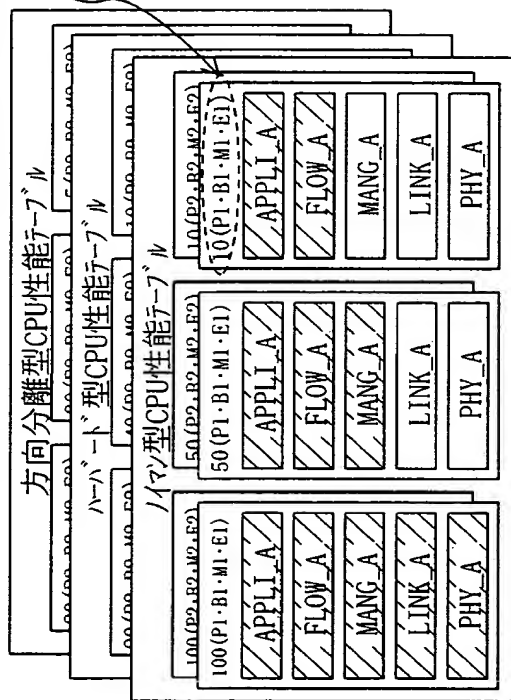 方向分離型CPU性能テーブル
ハーバード型CPU性能テーブル
ノイマン型CPU性能テーブル
100(P2・B2・M2・E2)
100(P1・B1・M1・E1)
APPLI_A
FLOW_A
MANG_A
LINK_A
PHY_A
50(P2・B2・M2・E2)
50(P1・B1・M1・E1)
APPLI_A
FLOW_A
MANG_A
LINK_A
PHY_A
10(P2・B2・M2・E2)
10(P1・B1・M1・E1)
APPLI_A
FLOW_A
MANG_A
LINK_A
PHY_A